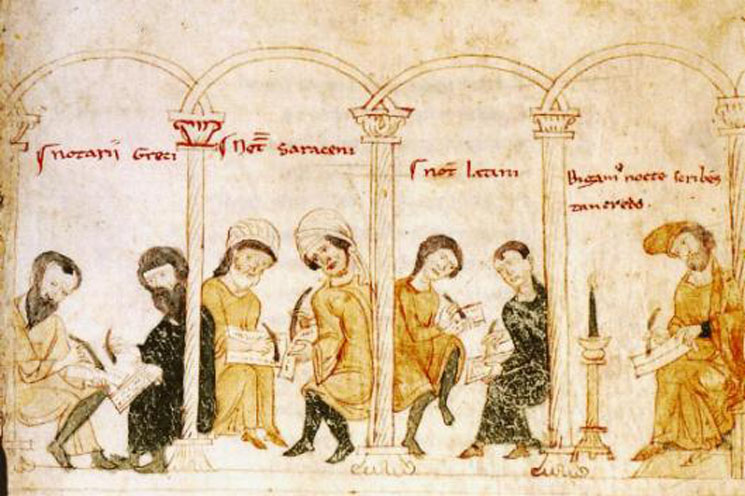 notarii Greci
Not̅ Saraceni
not̅ latini
Bigamꝰ nocte scribēs
tancredo.